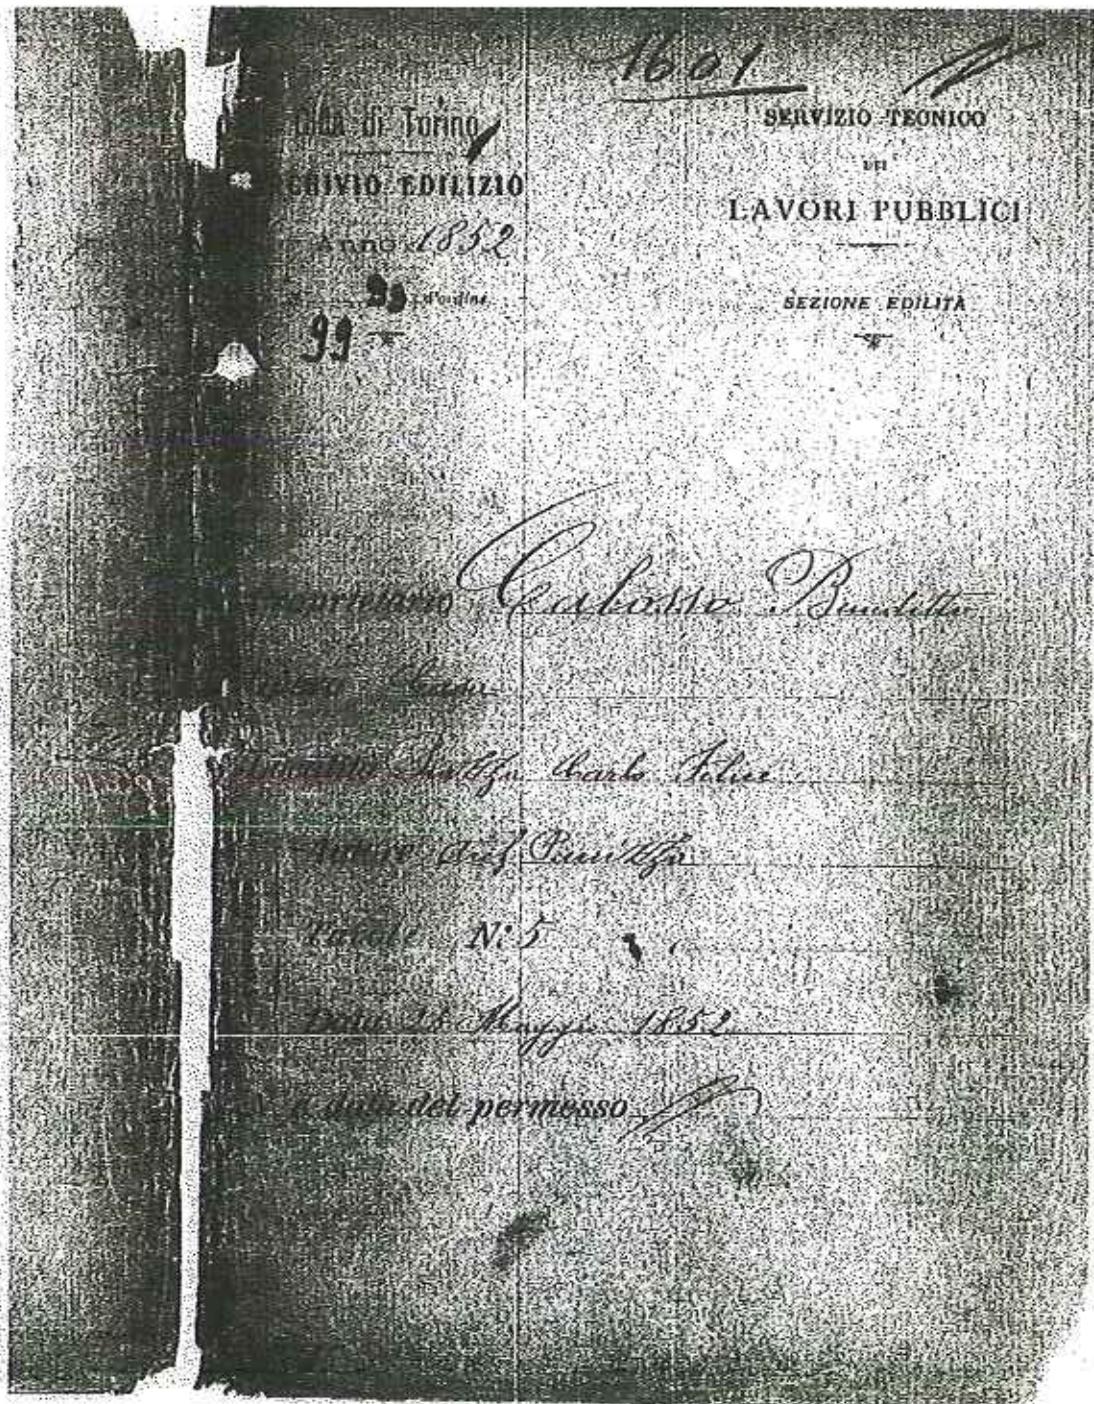 1601
Città di Torino
ARCHIVIO EDILIZIO
Anno 1852
99 d'ordine
99
SERVIZIO TECNICO
DEI
LAVORI PUBBLICI
SEZIONE EDILITÀ
Proprietario Calosso
Casa
Carlo Felice
Autore
Tavole N: 5
Data Maggio 1852
e data del permesso